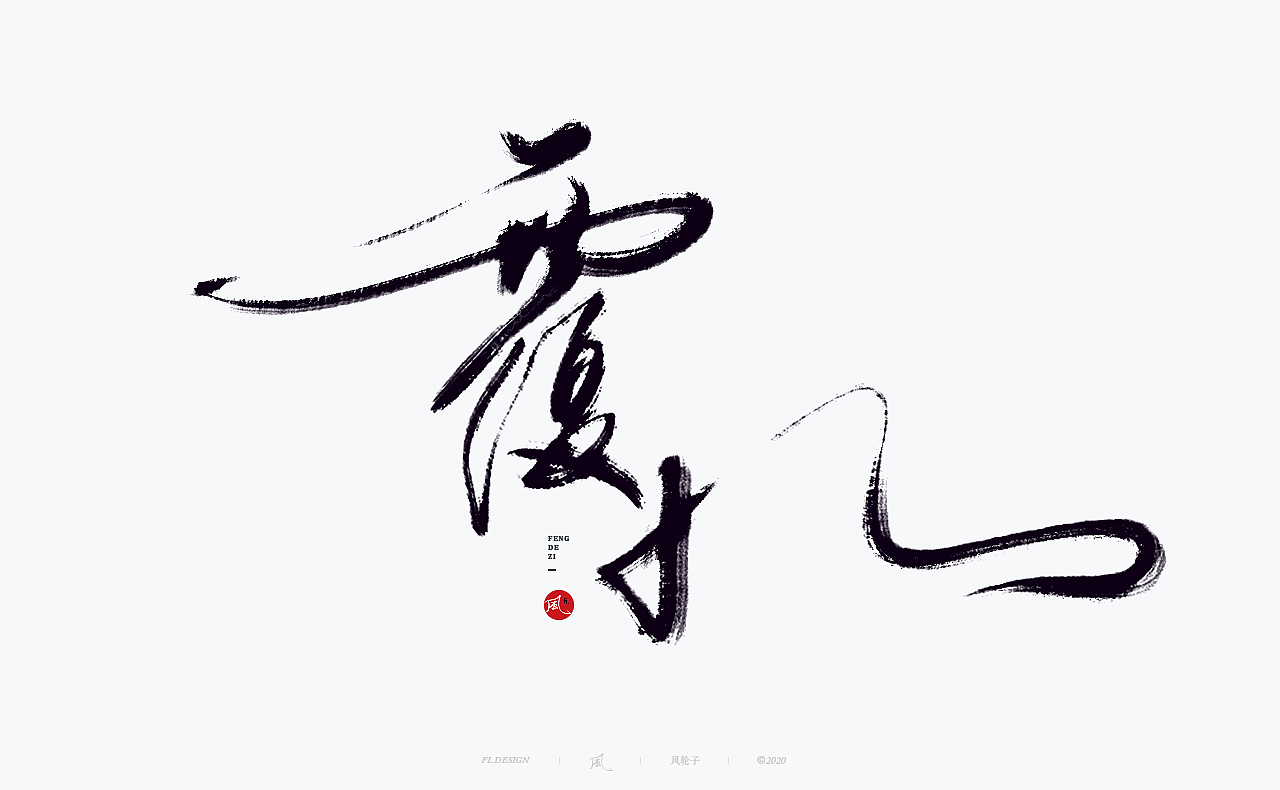 覆
FENG
DE
ZI
風
FL DESIGN
風
风轮子
©2020